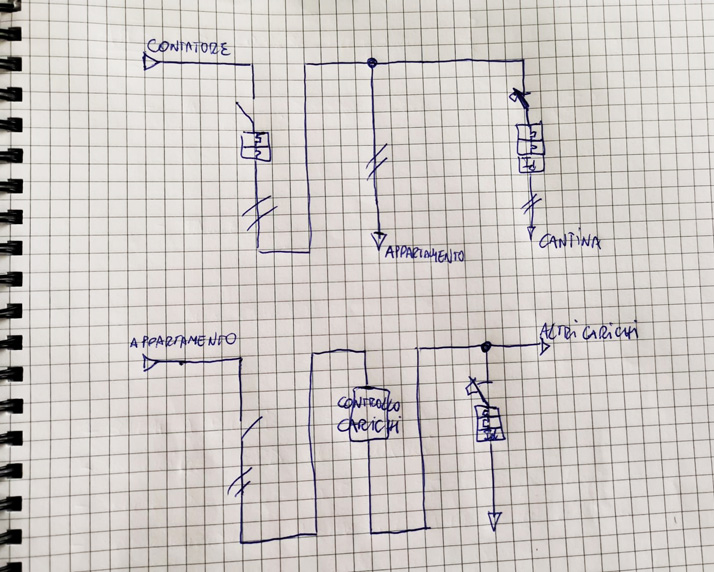 CONTATORE
APPARTAMENTO
CANTINA
APPARTAMENTO
ALTRI CARICHI
CONTROLLO
CARICHI